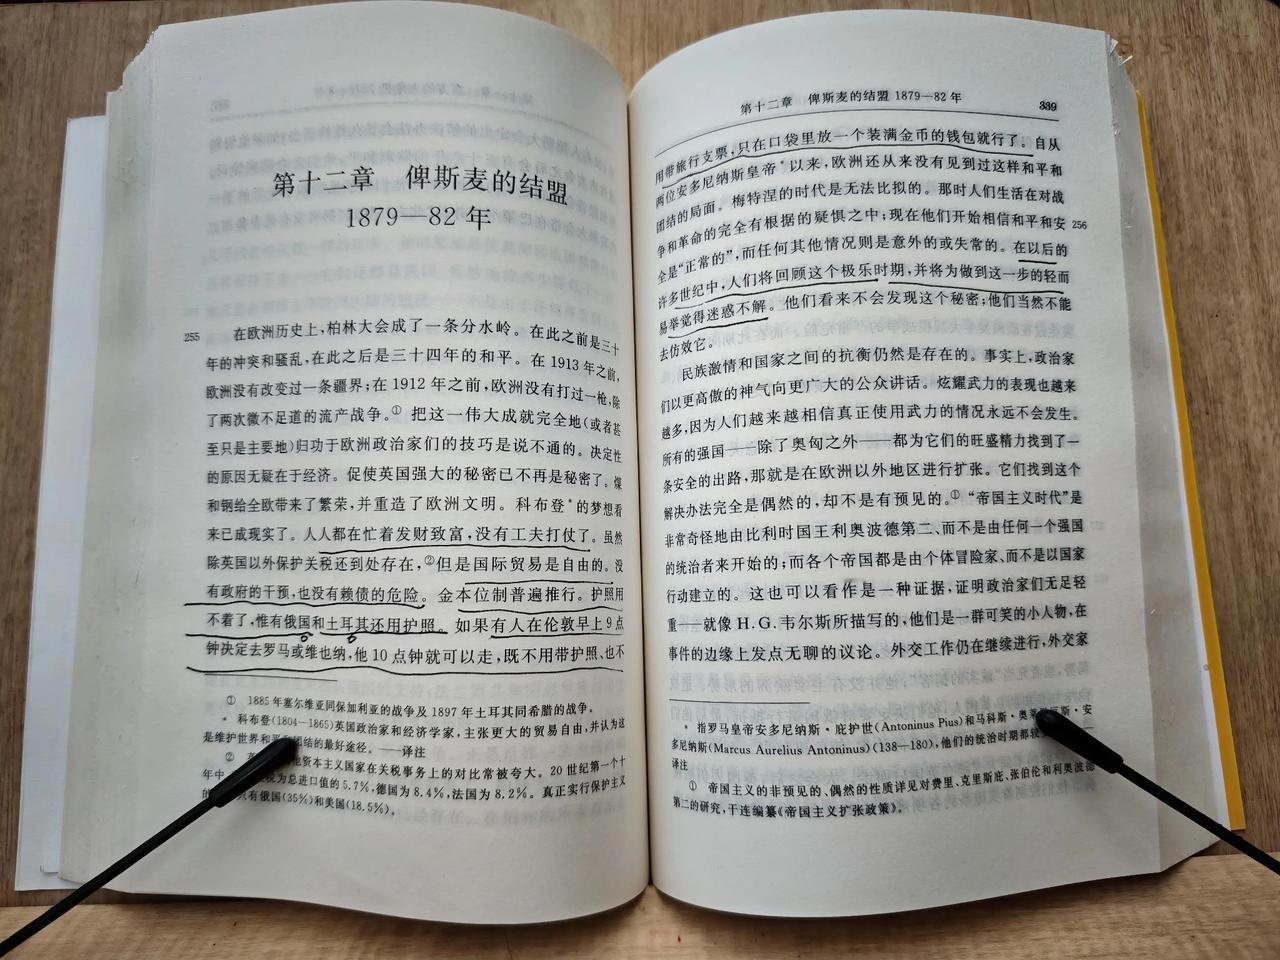 第十二章 俾斯麦的结盟
1879—82年
255
在欧洲历史上,柏林大会成了一条分水岭。在此之前是三十
年的冲突和骚乱,在此之后是三十四年的和平。在1913年之前,
欧洲没有改变过一条疆界;在1912年之前,欧洲没有打过一枪,除
了两次微不足道的流产战争。① 把这一伟大成就完全地(或者甚
至只是主要地)归功于欧洲政治家们的技巧是说不通的。决定性
的原因无疑在于经济。促使英国强大的秘密已不再是秘密了。煤
和钢给全欧带来了繁荣,并重造了欧洲文明。科布登*的梦想看
来已成现实了。人人都在忙着发财致富,没有工夫打仗了。虽然
除英国以外保护关税还到处存在,②但是国际贸易是自由的。没
有政府的干预,也没有赖债的危险。金本位制普遍推行。护照用
不着了,惟有俄国和土耳其还用护照。如果有人在伦敦早上9点
钟决定去罗马或维也纳,他10点钟就可以走,既不用带护照、也不
① 1885年塞尔维亚同保加利亚的战争及1897年土耳其同希腊的战争。
* 科布登(1804—1865)英国政治家和经济学家,主张更大的贸易自由,并认为这
是维护世界和平和团结的最好途径。——译注
② 资本主义国家在关税事务上的对比常被夸大。20世纪第一个十
年中, 为总进口值的5.7%,德国为8.4%,法国为8.2%。真正实行保护主义
的 只有俄国(35%)和美国(18.5%)。
第十二章 俾斯麦的结盟 1879—82年
339
用带旅行支票,只在口袋里放一个装满金币的钱包就行了。自从
两位安多尼纳斯皇帝*以来,欧洲还从来没有见到过这样和平和
团结的局面。梅特涅的时代是无法比拟的。那时人们生活在对战
争和革命的完全有根据的疑惧之中;现在他们开始相信和平和安
256
全是“正常的”,而任何其他情况则是意外的或失常的。在以后的
许多世纪中,人们将回顾这个极乐时期,并将为做到这一步的轻而
易举觉得迷惑不解。他们看来不会发现这个秘密;他们当然不能
去仿效它。
民族激情和国家之间的抗衡仍然是存在的。事实上,政治家
们以更高傲的神气向更广大的公众讲话。炫耀武力的表现也越来
越多,因为人们越来越相信真正使用武力的情况永远不会发生。
所有的强国——除了奥匈之外——都为它们的旺盛精力找到了一
条安全的出路,那就是在欧洲以外地区进行扩张。它们找到这个
解决办法完全是偶然的,却不是有预见的。①“帝国主义时代”是
非常奇怪地由比利时国王利奥波德第二、而不是由任何一个强国
的统治者来开始的;而各个帝国都是由个体冒险家、而不是以国家
行动建立的。这也可以看作是一种证据,证明政治家们无足轻
重——就像H.G.韦尔斯所描写的,他们是一群可笑的小人物,在
事件的边缘上发点无聊的议论。外交工作仍在继续进行,外交家
* 指罗马皇帝安多尼纳斯·庇护世(Antoninus Pius)和马科斯·奥 斯·安
多尼纳斯(Marcus Aurelius Antoninus)(138—180),他们的统治时期都较
译注
① 帝国主义的非预见的、偶然的性质详见对费里、克里斯底、张伯伦和利奥波德
第二的研究,于连编纂《帝国主义扩张政策》。